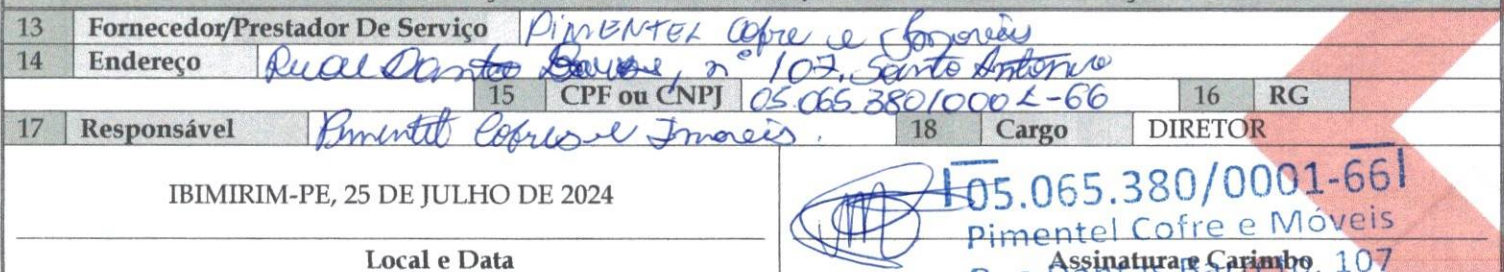 13 Fornecedor/Prestador De Serviço PIMENTEL Cofre e
14 Endereço nº 107, Santo Antonio
15 CPF ou CNPJ 05.065.380/0001-66 16 RG
17 Responsável Pimentel Cofres e Imoveis. 18 Cargo DIRETOR
IBIMIRIM-PE, 25 DE JULHO DE 2024
05.065.380/0001-66
Pimentel Cofre e Móveis
Local e Data
Assinatura e Carimbo
107